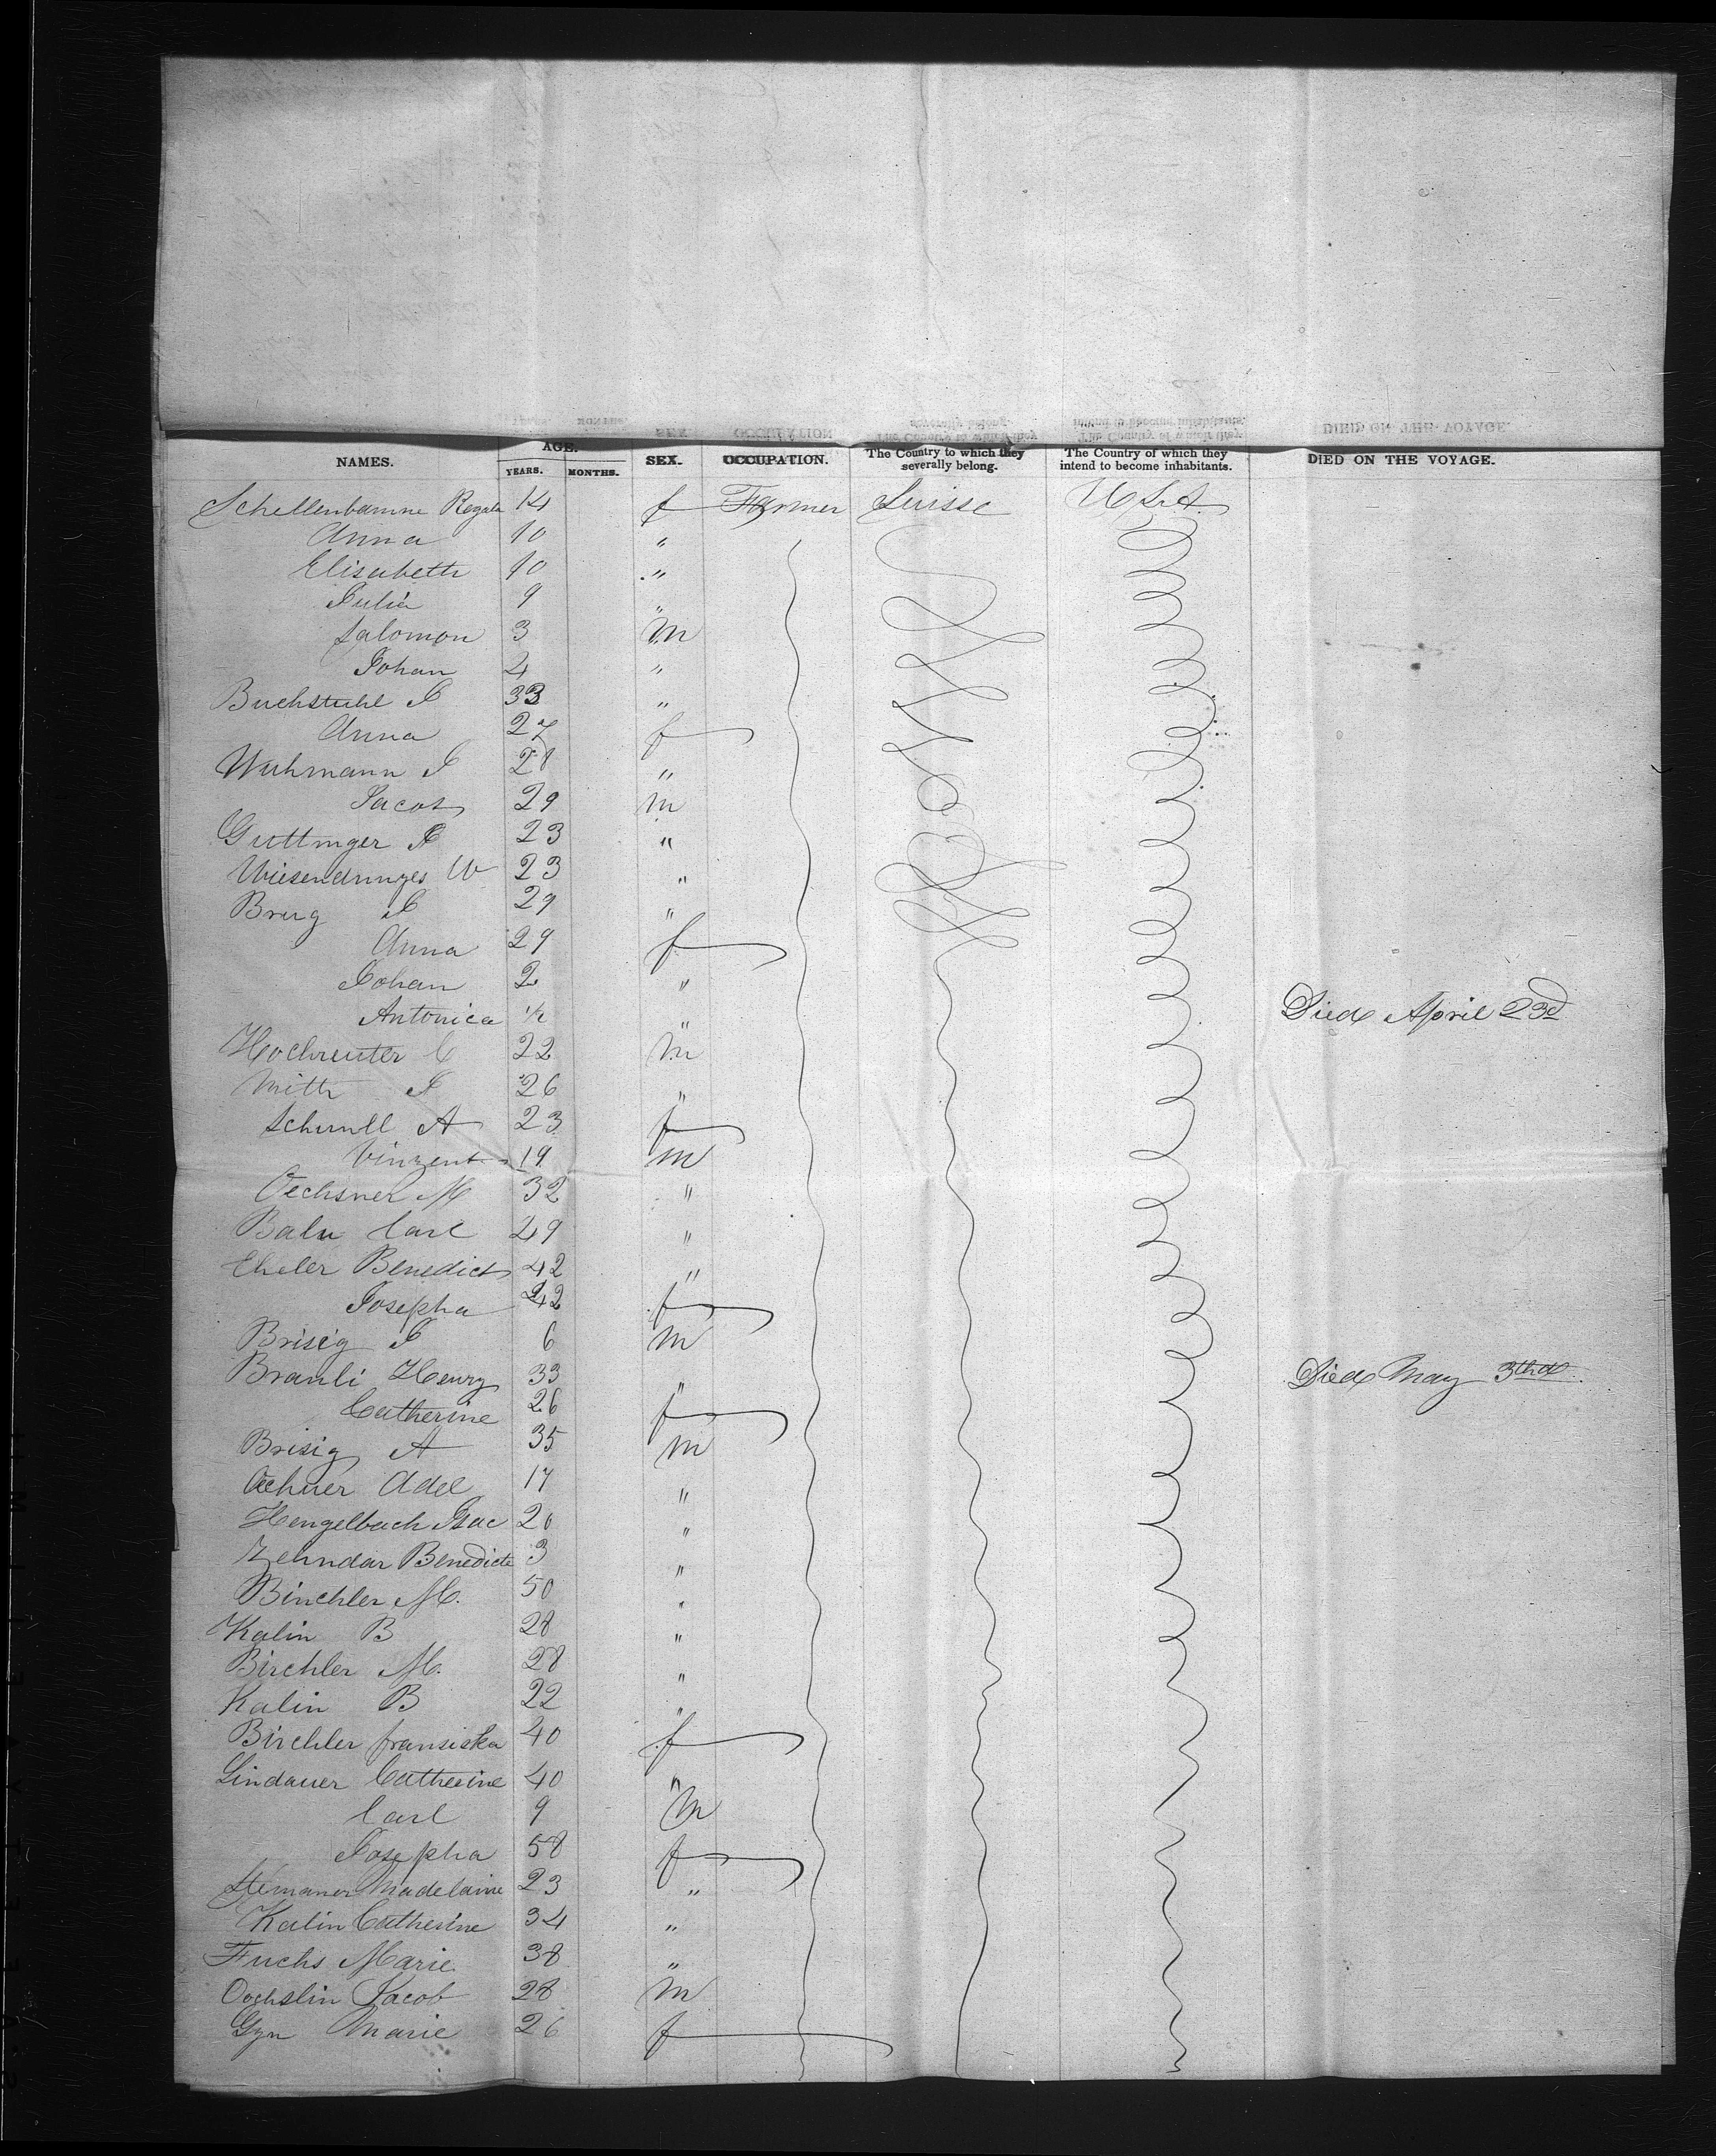 NAMES. AGE. YEARS. MONTHS. SEX. OCCUPATION. The Country to which they severally belong. The Country of which they intend to become inhabitants. DIED ON THE VOYAGE.
Schellenbamne Regula 14 f Farmer Suisse U S A
Anna 10 "
Elisabeth 10 "
Julia 9 "
Salomon 3 m
Johan 4 "
Buchstuhl J 33 "
Anna 27 f
Wuhrmann J 28 "
Jacob 29 m
Guttinger J 23 "
Wiesendunges W 23 "
Brug J 29 "
Anna 29 f
Johan 2 "
Antonica 1/2 " Died April 23d
Hochreuter C 22 m
Mitth J 26 "
Schmll A 23 f
Vinzent 19 m
Oechsner M 32 "
Balu Carl 29 "
Eheler Benedict 42 "
Josepha 42 f
Brisig J 6 m
Branli Henry 33 " Died May 3thd
Catherine 26 f
Brisig A 35 m
Oehner Adel 17 "
Hengelbach Isac 20 "
Zehndar Benedicte 3 "
Binchler M. 50 "
Kalin B 28 "
Birchler M. 28 "
Kalin B 22 "
Birchler fransiska 40 f
Lindauer Catherine 40 "
Carl 9 m
Josepha 58 f
Madelaine 23 "
Kalin Catherine 34 "
Fuchs Marie 38 "
Oechslin Jacob 28 m
Gyr Marie 26 f